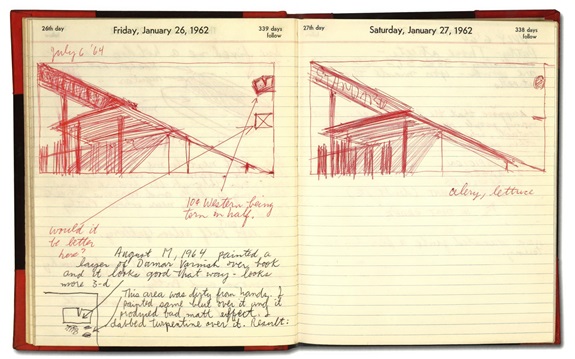 26th day
Friday, January 26, 1962
339 days
follow
July 6 '64
10¢ Western being
torn in half.
would it
be better
here?
August 17, 1964 painted a
layer of Damar Varnish over book
and it looks good that way - looks
more 3-d
This area was dirty from hands. I
painted same blue over it and it
produced bad matt effect. I
dabbed turpentine over it. Result:
27th day
Saturday, January 27, 1962
338 days
follow
celery, lettuce